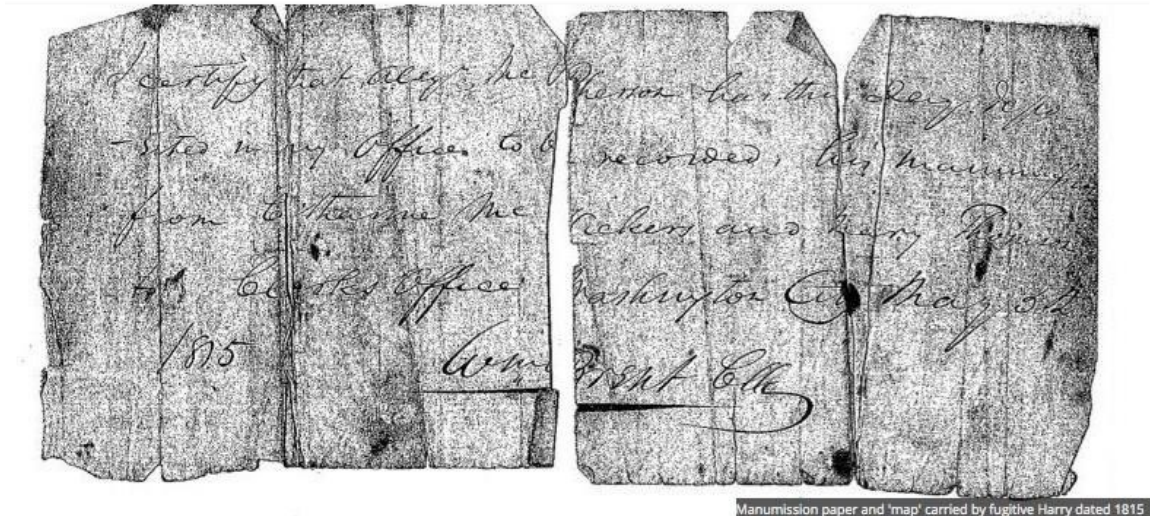 I certify that Alexr. McPherson has this day depo
-sited in my Office to be recorded, his manumission
from Catharine Mc Vickers and Henry
Clerks Office Washington City May
1815
Wm Brent Clk
Manumission paper and 'map' carried by fugitive Harry dated 1815